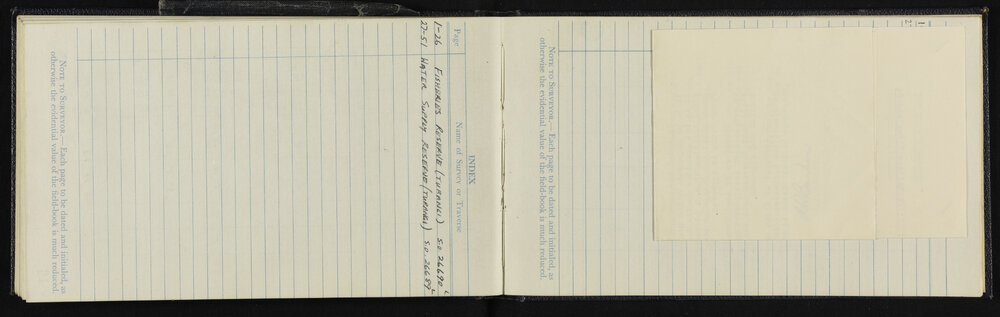 INDEX
Page Name of Survey or Traverse
1-26 FISHERIES RESERVE (TURANGI) S.O. 26690
27-51 WATER SUPPLY RESERVE (TURANGI) S.O. 26689
NOTE TO SURVEYOR.— Each page to be dated and initialed, as
otherwise the evidential value of the field-book is much reduced.
NOTE TO SURVEYOR.— Each page to be dated and initialed, as
otherwise the evidential value of the field-book is much reduced.